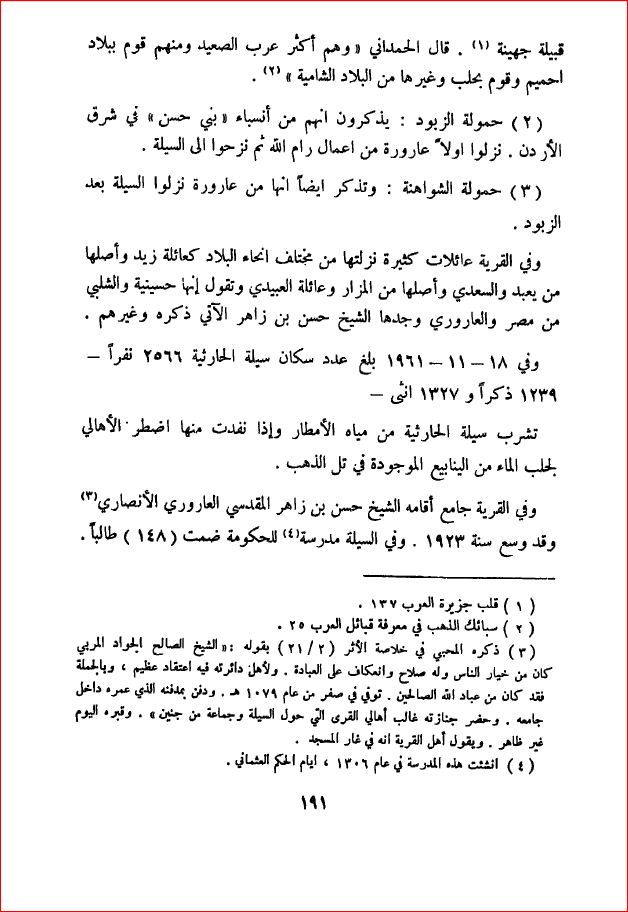 قبيلة جهينة (١) . قال الحمداني « وهم أكثر عرب الصعيد ومنهم قوم ببلاد
احميم وقوم بحلب وغيرها من البلاد الشامية » (٢) .
(٢) حمولة الزبود : يذكرون انهم من أنسباء « بني حسن » في شرق
الأردن . نزلوا اولاً عارورة من اعمال رام الله ثم نزحوا الى السيلة .
(٣) حمولة الشواهنة : وتذكر ايضاً انها من عارورة نزلوا السيلة بعد
الزبود .
وفي القرية عائلات كثيرة نزلتها من مختلف انحاء البلاد كعائلة زيد وأصلها
من يعبد والسعدي وأصلها من المزار وعائلة العبيدي وتقول إنها حسينية والشلبي
من مصر والعاروري وجدها الشيخ حسن بن زاهر الآتي ذكره وغيرهم .
وفي ١٨ – ١١ – ١٩٦١ بلغ عدد سكان سيلة الحارثية ٢٥٦٦ نفراً –
١٢٣٩ ذكراً و ١٣٢٧ انثى –
تشرب سيلة الحارثية من مياه الأمطار وإذا نفدت منها اضطر الأهالي
لجلب الماء من الينابيع الموجودة في تل الذهب .
وفي القرية جامع أقامه الشيخ حسن بن زاهر المقدسي العاروري الأنصاري(٣)
وقد وسع سنة ١٩٢٣ . وفي السيلة مدرسة(٤) للحكومة ضمت (١٤٨) طالباً .
(١) قلب جزيرة العرب ١٣٧ .
(٢) سبائك الذهب في معرفة قبائل العرب ٢٥ .
(٣) ذكره المحبي في خلاصة الأثر (٢/٢١) بقوله : « الشيخ الصالح الجواد المربي
كان من خيار الناس وله صلاح وانعكاف على العبادة . ولأهل دائرته فيه اعتقاد عظيم ، وبالجملة
فقد كان من عباد الله الصالحين . توفي في صفر من عام ١٠٧٩ هـ . ودفن بمدفنه الذي عمره داخل
جامعه . وحضر جنازته غالب أهالي القرى التي حول السيلة وجماعة من جنين » . وقبره اليوم
غير ظاهر . ويقول أهل القرية انه في غار المسجد .
(٤) انشئت هذه المدرسة في عام ١٣٠٦ ، ايام الحكم العثماني .
١٩١